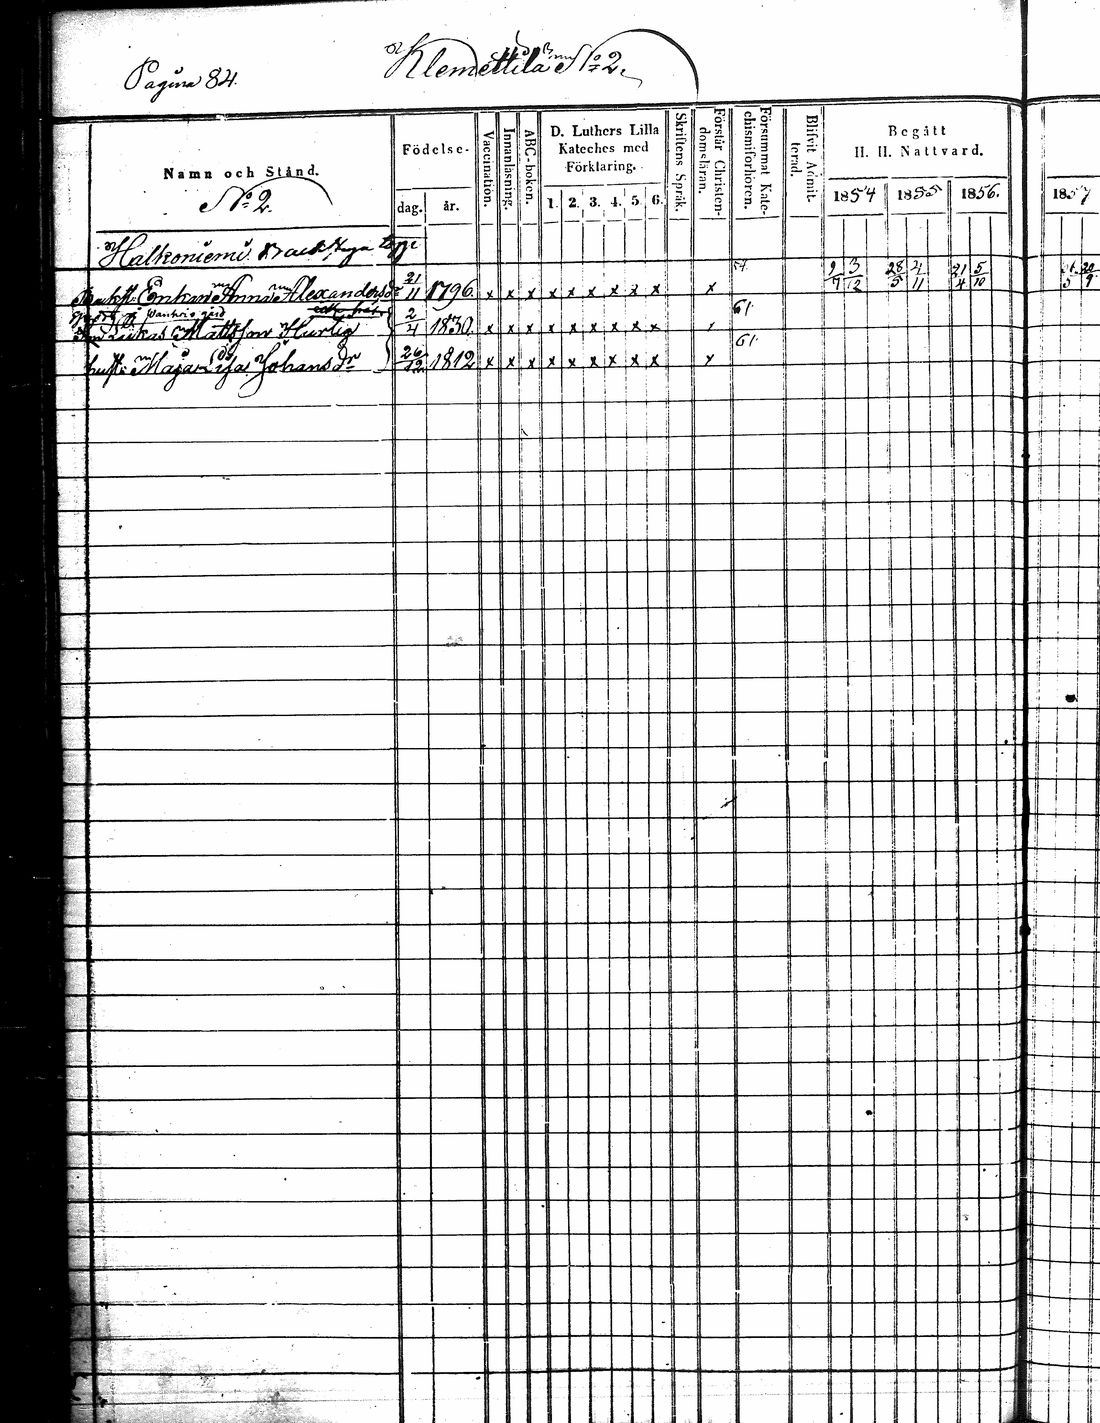 Pagina 84.
Klemettilä No 2.
Namn och Stånd.
No 2.
Födelse-
dag.
år.
Vaccination.
Innanläsning.
ABC-boken.
D. Luthers Lilla
Kateches med
Förklaring.
1. 2. 3. 4. 5. 6.
Skriftens Språk.
Förstår Christen-
domsläran.
Försummat Kate-
chismiförhören.
Blifvit Admit-
terad.
Begått
H. H. Nattvard.
1854 1855 1856. 1857
Halkoniemi
Enkan Anna Alexandersdr 21/11 1796. x x x x x x x x x x 57 9/7 3/12 28/5 4/11 21/4 5/10
Lukas Mattsson Hurtig 2/4 1830. x x x x x x x x x 61
hust. Maja Lisa Johansdr 26/12 1812 x x x x x x x x x x 61